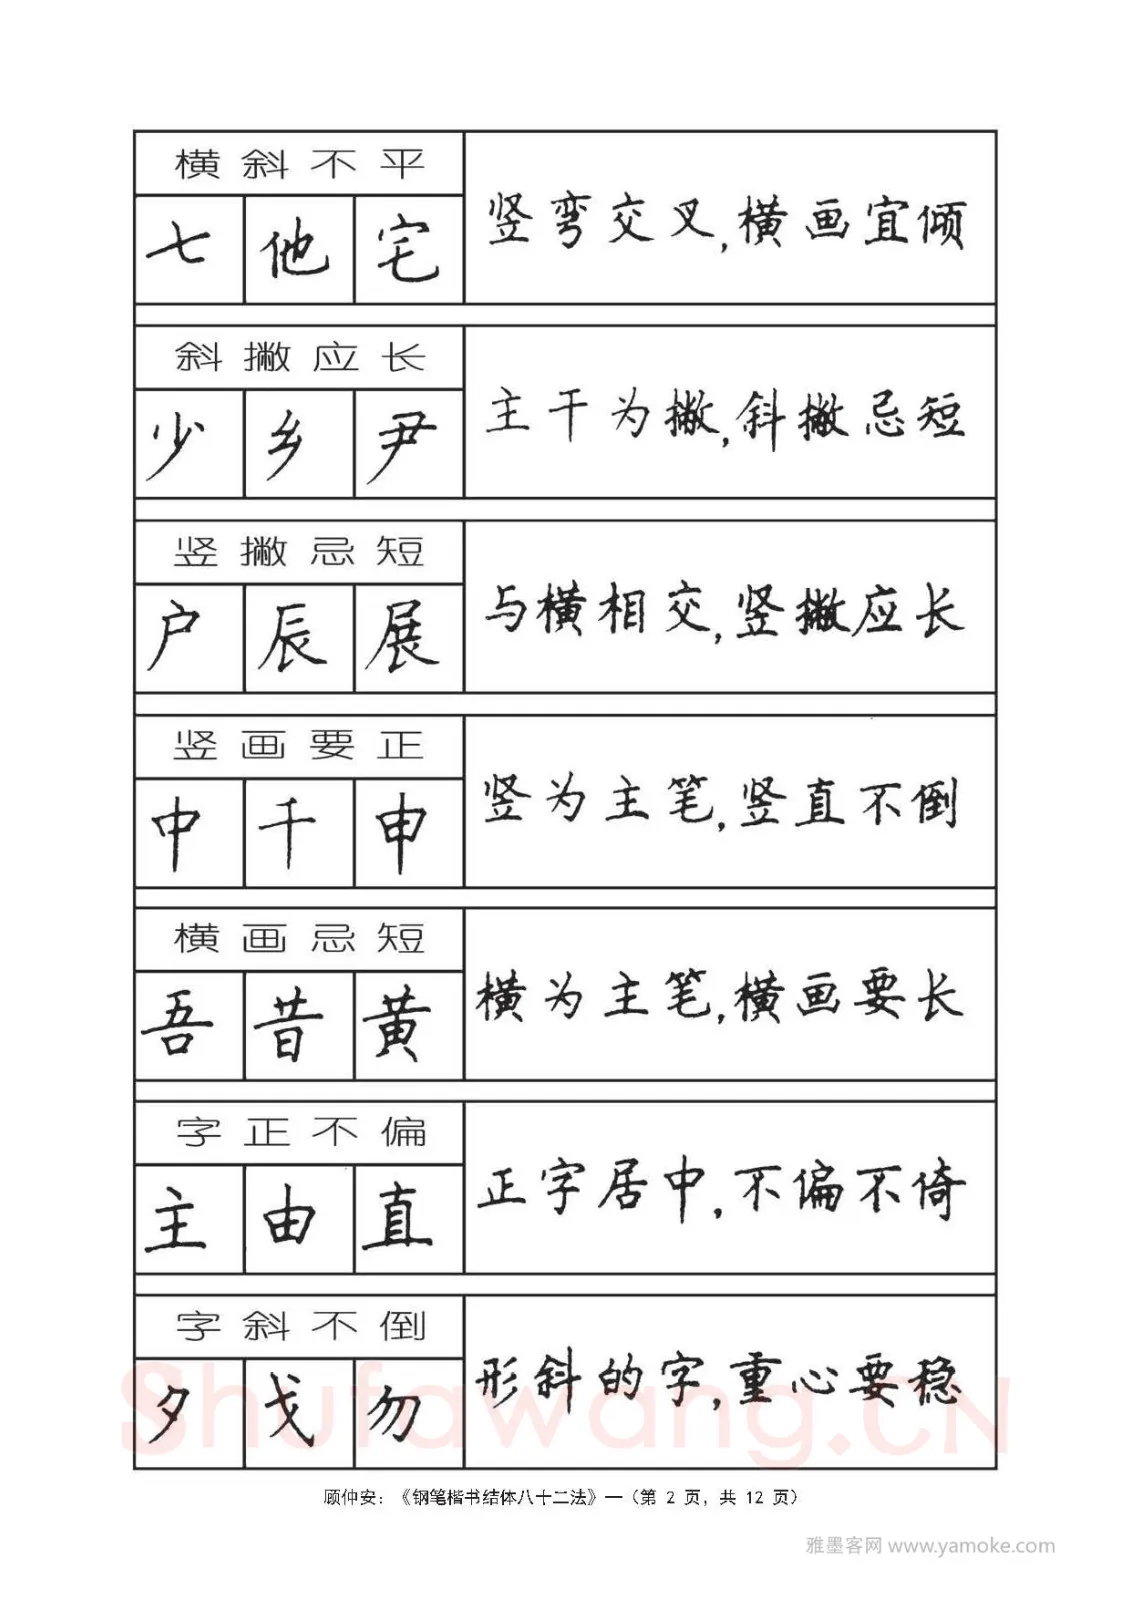 横斜不平
七 他 宅
竖弯交叉,横画宜倾
斜撇应长
少 乡 尹
主干为撇,斜撇忌短
竖撇忌短
户 辰 展
与横相交,竖撇应长
竖画要正
中 千 申
竖为主笔,竖直不倒
横画忌短
吾 昔 黄
横为主笔,横画要长
字正不偏
主 由 直
正字居中,不偏不倚
字斜不倒
夕 戈 勿
形斜的字,重心要稳
Shufawang.CN
顾仲安：《钢笔楷书结体八十二法》—（第 2 页，共 12 页）
雅墨客网 www.yamoke.com